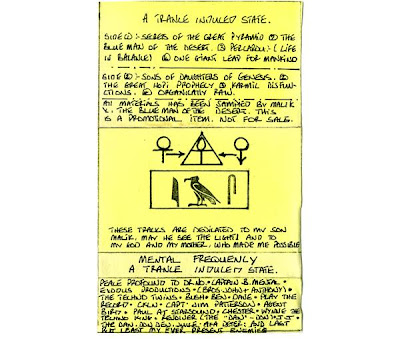 A TRANCE INDUCED STATE.
SIDE ①:- SECRETS OF THE GREAT PYRAMID ② THE
BLUE MAN OF THE DESERT. ③ PERCARDU:- (LIFE
IS BALANCE) ④ ONE GIANT LEAP FOR MANKIND
SIDE ②:- SONS OF DAUGHTERS OF GENESIS. ②
THE GREAT HOPI PROPHECY ③ KARMIC DISFUN-
CTIONS. ④ ORGANICALLY RAW.
ALL MATERIALS HAS BEEN SAMPLED BY MALIK
X. THE BLUE MAN OF THE DESERT. THIS
IS A PROMOTIONAL ITEM. NOT FOR SALE.
THESE TRACKS ARE DEDICATED TO MY SON
MALIK, MAY HE SEE THE LIGHT! AND TO
MY GOD AND MY MOTHER, WHO MADE ME POSSIBLE
MENTAL FREQUENCY
A TRANCE INDUCED STATE.
PEACE PROFOUND TO DR.NO. • CAPTAIN B. MENTAL •
EXODUS PRODUCTIONS • (BROS JOHN + ANTHONY) •
THE TECHNO TWINS • BUSH • BEN • DAVE • PLAY THE
RECORD • CKLN • CAPT. JIM PATTERSON • AGENT
BIRD • PAUL AT STARSOUND • CHESTER • WYNNE THE
TECHNO KING • • THE "DAN" • DON • J.J •
THE DAN, DON DEN, AND LAST
BUT LEAST MY EVER PRESENT ENEMIES